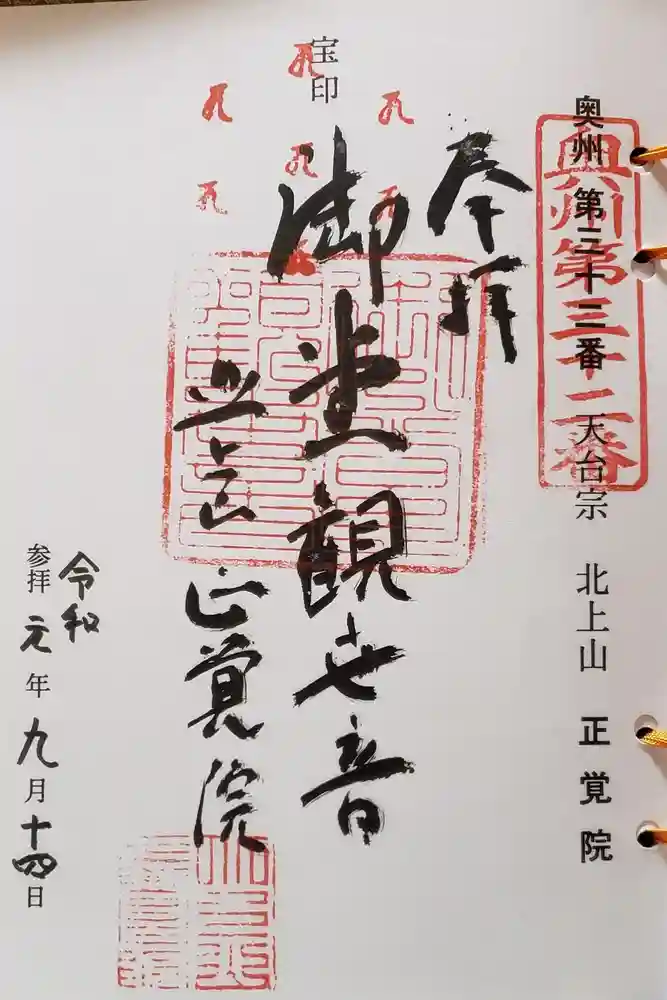 奥州 第三十二番 天台宗 北上山 正覚院
奥州第三十二番
奉拝
宝印
御堂観世音
北上山 正覚院
令和
参拝 元年 九月十四日